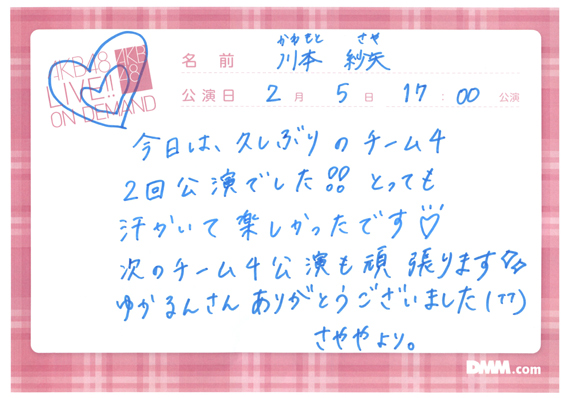 AKB48
LIVE!!
ON DEMAND
AKB
48
かわもと さや
名前 川本 紗矢
公演日 2月 5日 17:00 公演
今日は、久しぶりのチーム4
2回公演でした!! とっても
汗かいて楽しかったです♡
次のチーム4公演も頑張ります
ゆかるんさんありがとうございました(TT)
さややより。
DMM.com